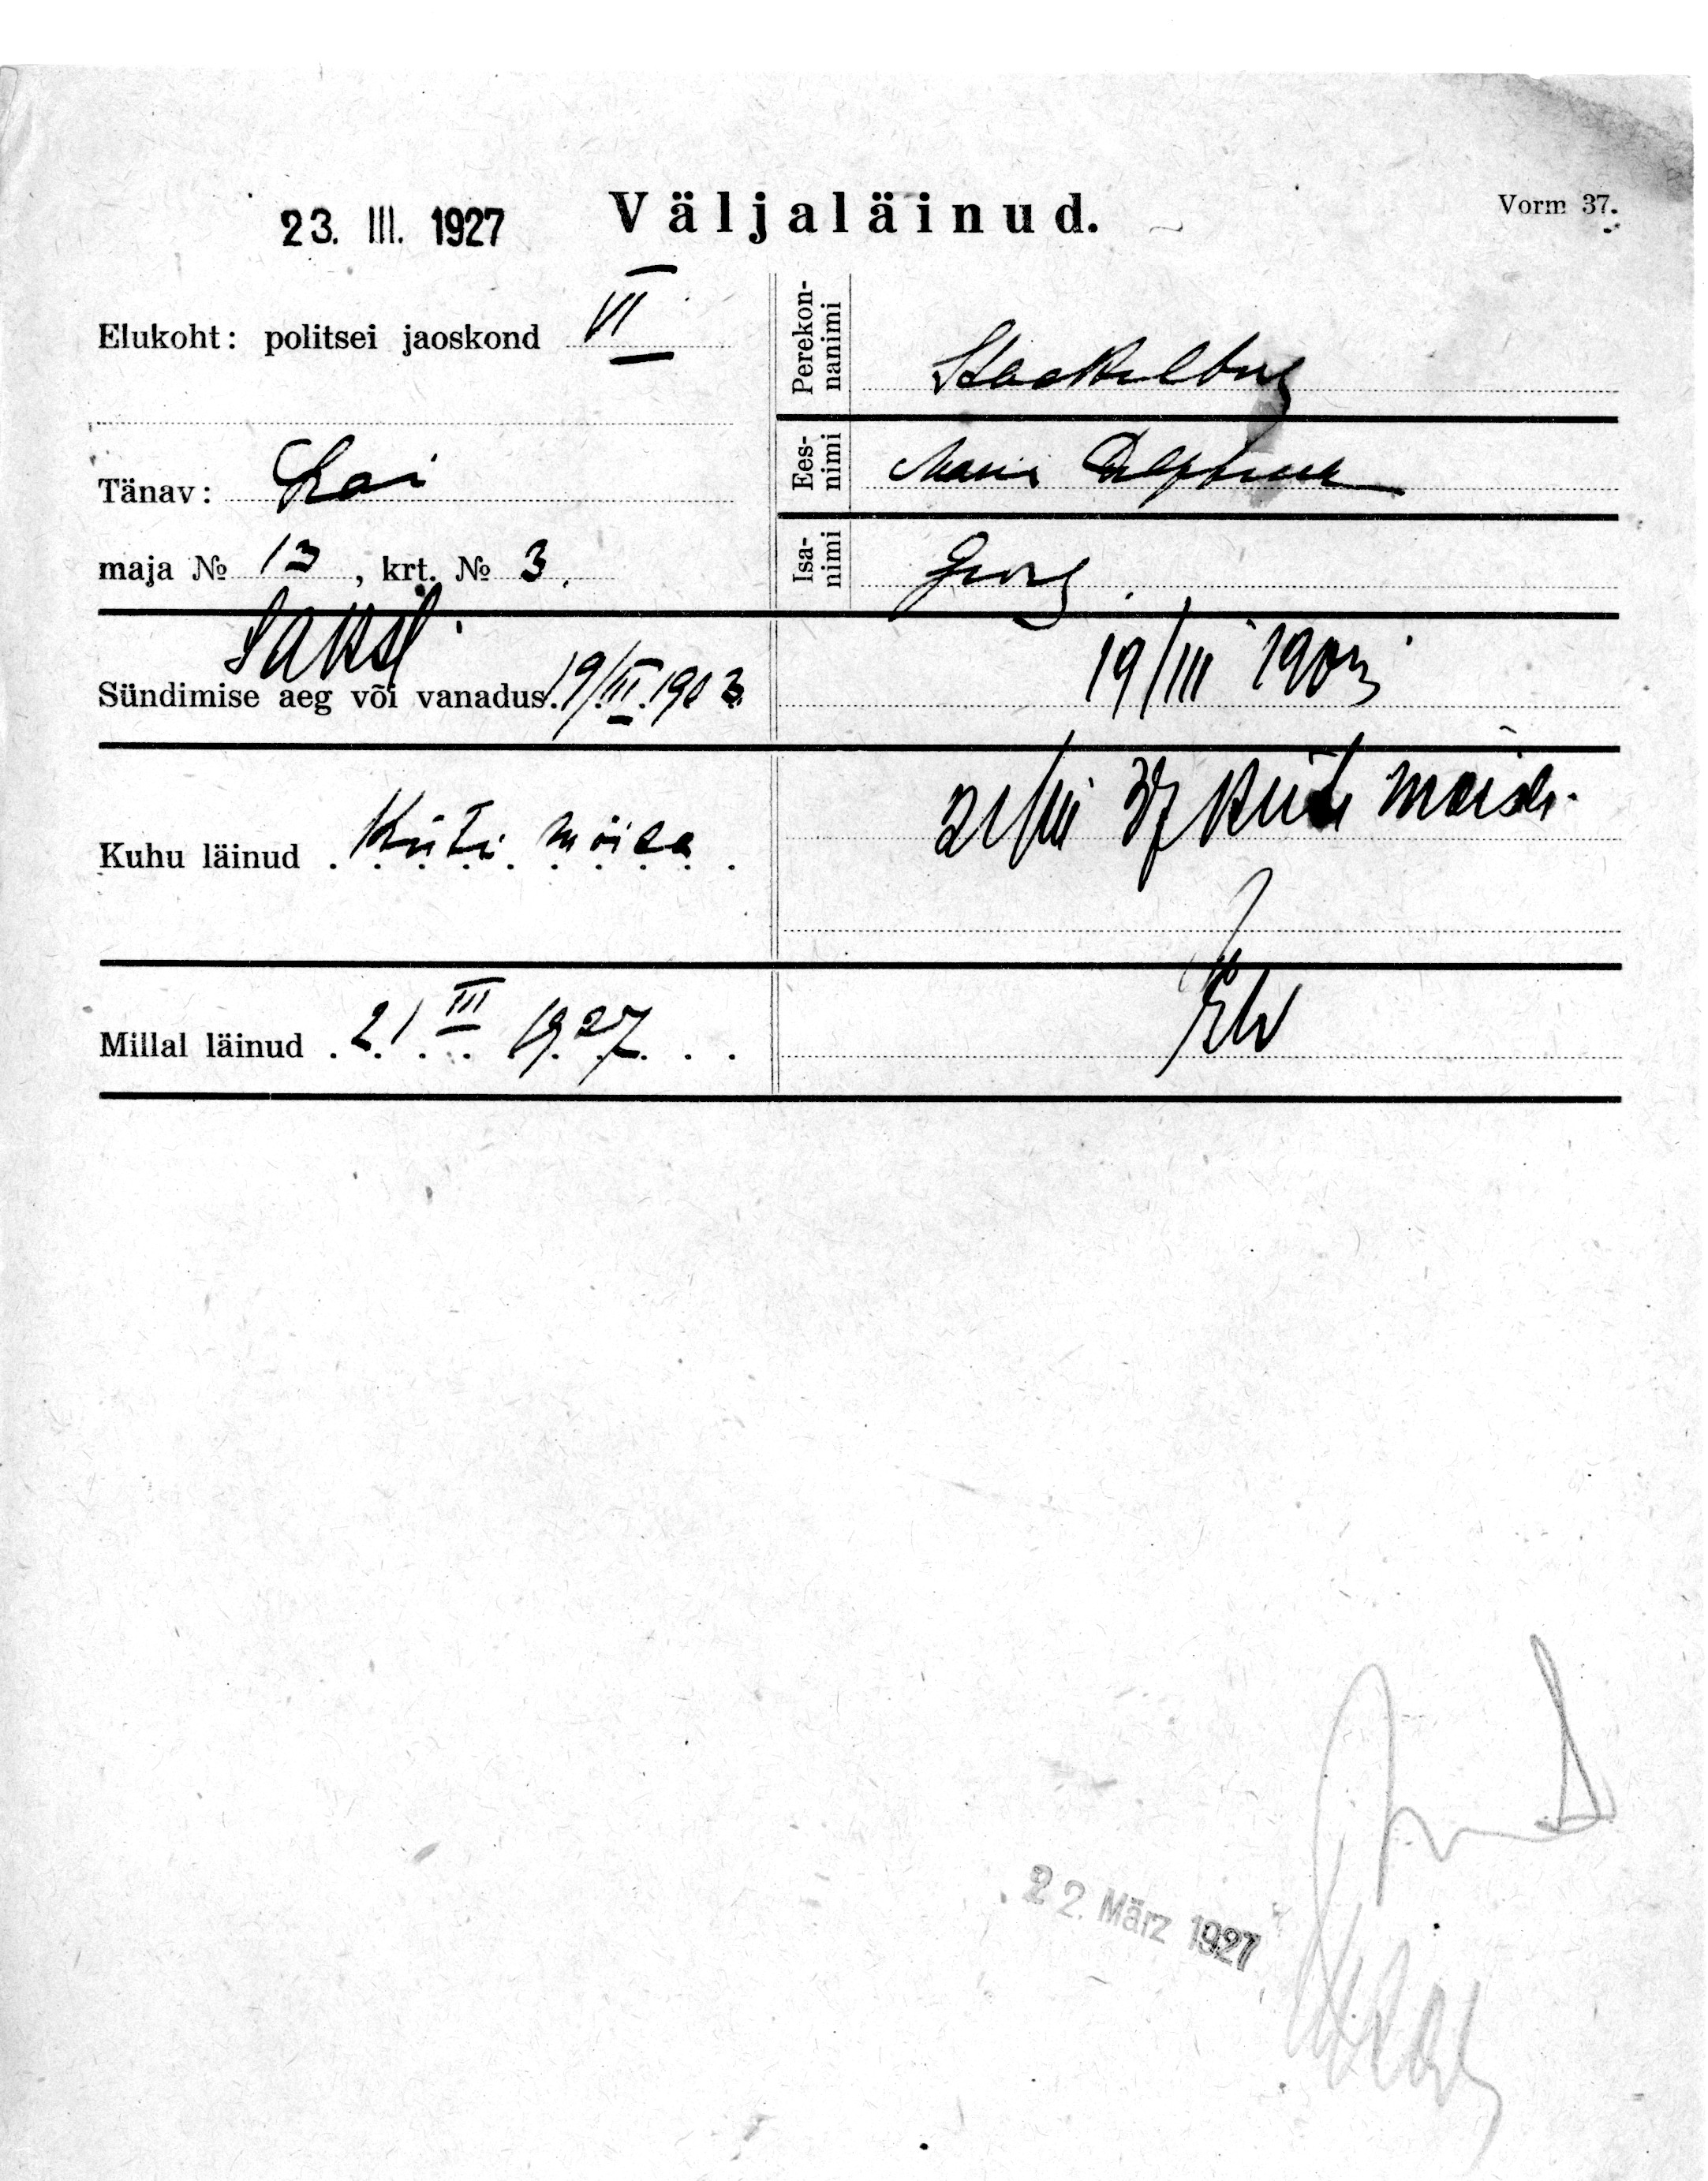 23. III. 1927 Väljaläinud. Vorm 37.
Elukoht: politsei jaoskond VI
Perekonnanimi Stackelberg
Tänav: Lai
Eesnimi Marie
maja № 13, krt. № 3.
Isanimi Georg.
Sündimise aeg või vanadus. 19/III. 1903
19/III 1903
Kuhu läinud Küti mõisa
21/III 27 Küti mõisa.
Millal läinud 21 III 1927
22. März 1927